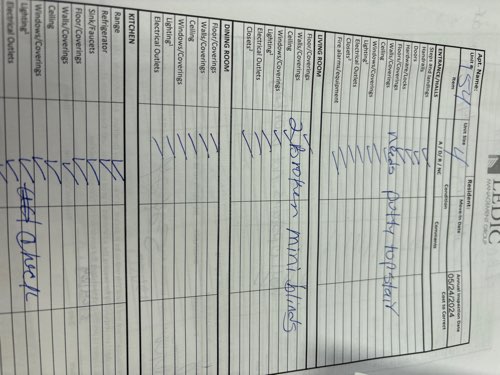 LEDIC
MANAGEMENT GROUP
Apt. Name:
Resident:
Unit # 154 Unit Size 4 Move-In Date Annual Inspection Date
05/24/2024
Item A / D / R / NC Condition Comments Cost to Correct
ENTRANCE/HALLS
Steps and landings
Handrails
Doors
Hardware/Locks
Floors/Coverings
Walls/Coverings needs putty top stair
Ceiling
Windows/Coverings
Lighting¹
Electrical Outlets
Closets²
Fire alarms/equipment
LIVING ROOM
Floor/Coverings
Walls/Coverings
Ceiling
Windows/Coverings 2 broken mini blinds
Lighting¹
Electrical Outlets
Closets²
DINING ROOM
Floor/Coverings
Walls/Coverings
Ceiling
Windows/Coverings
Lighting¹
Electrical Outlets
KITCHEN
Range
Refrigerator
Sink/Faucets
Floor/Coverings
Walls/Coverings
Ceiling
Windows/Coverings
Lighting¹ check
Electrical Outlets